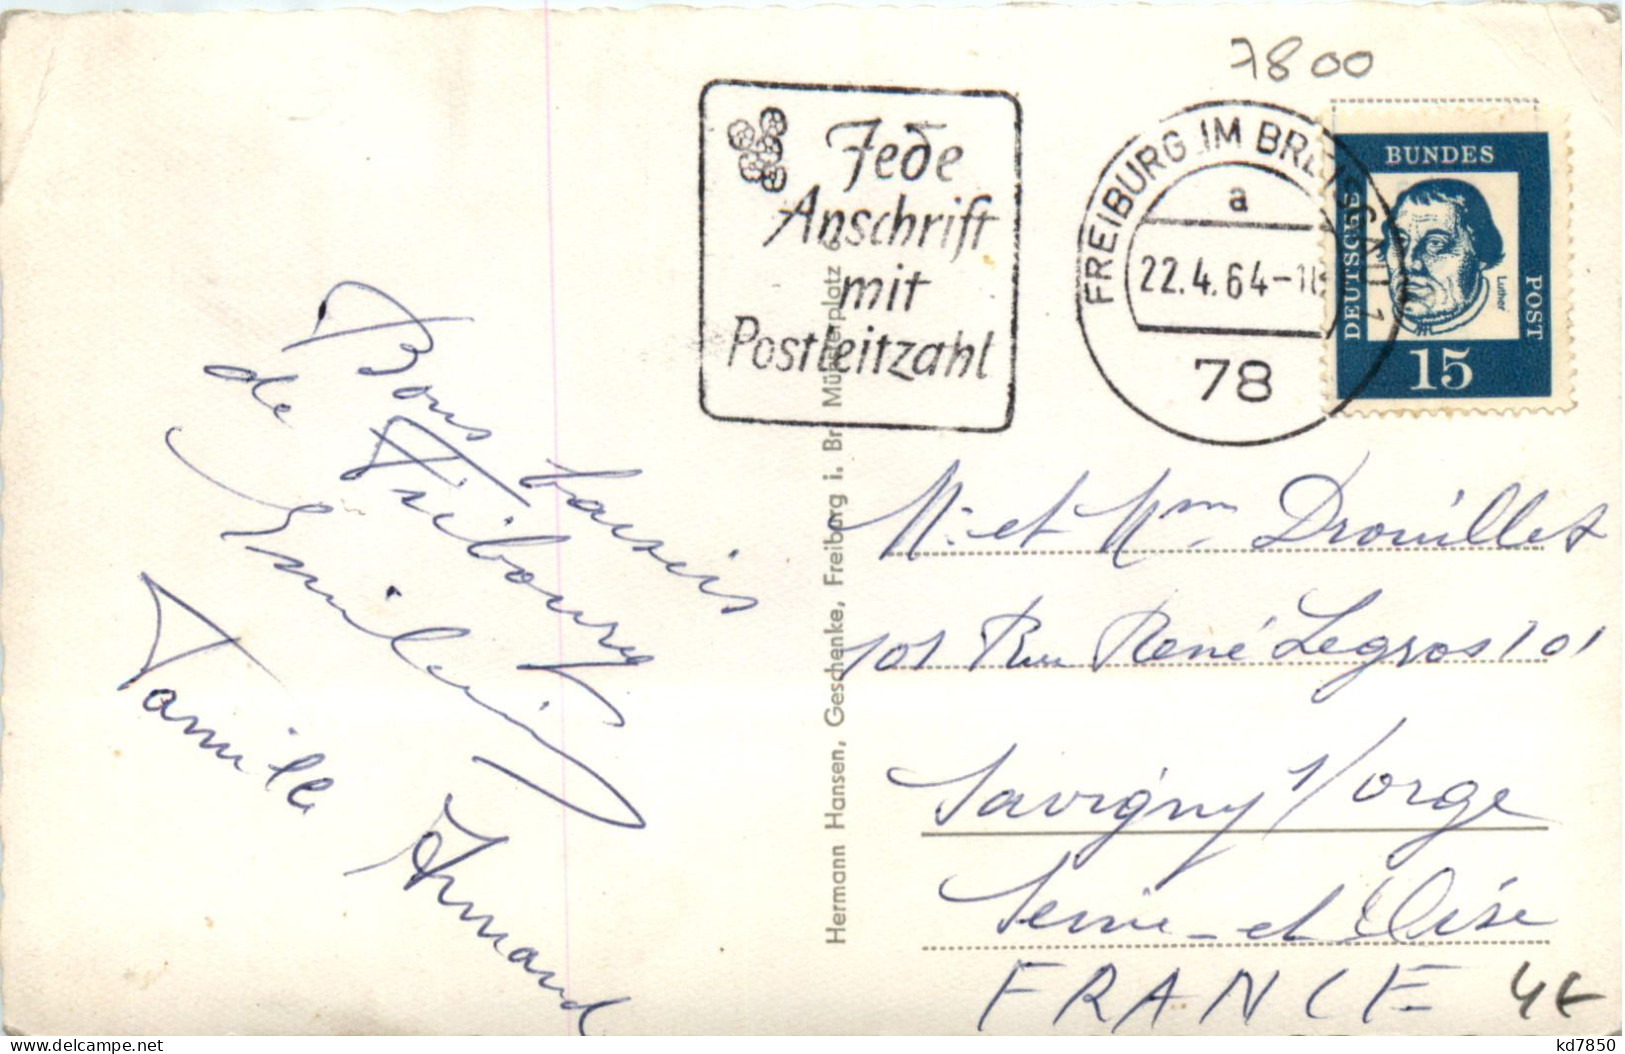 7800
Jede
Anschrift
mit
Postleitzahl
FREIBURG IM BREISGAU 1
a
22.4.64-1
78
DEUTSCHE BUNDES POST
Luther
15
Bons baisers
de Fribourg
Famille Armand
Hermann Hansen, Geschenke, Freiburg i. Br. Münsterplatz 6
M. et Mme Drouillet
101 Rue René Legros 101
Savigny s/orge
Seine-et Oise
FRANCE
4€
kd7850